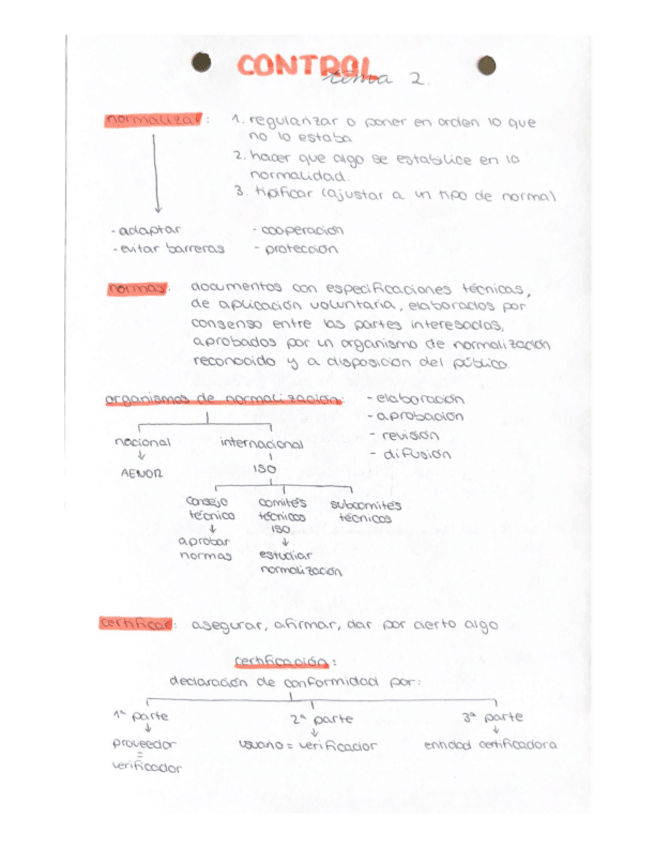 CONTROL
tema 2.
normalizar: 1. regularizar o poner en orden lo que
no lo estaba
2. hacer que algo se estabilice en la
normalidad.
3. tipificar (ajustar a un tipo de norma)
- adaptar - cooperación
- evitar barreras - protección
normas: documentos con especificaciones técnicas,
de aplicación voluntaria, elaborados por
consenso entre las partes interesadas,
aprobados por un organismo de normalización
reconocido y a disposición del público.
organismos de normalización: - elaboración
- aprobación
- revisión
- difusión
nacional internacional
AENOR ISO
consejo comités subcomités
técnico técnicos técnicos
ISO
aprobar
normas estudiar
normalización
certificar: asegurar, afirmar, dar por cierto algo
certificación:
declaración de conformidad por:
1ª parte 2ª parte 3ª parte
proveedor usuario = verificador entidad certificadora
=
verificador